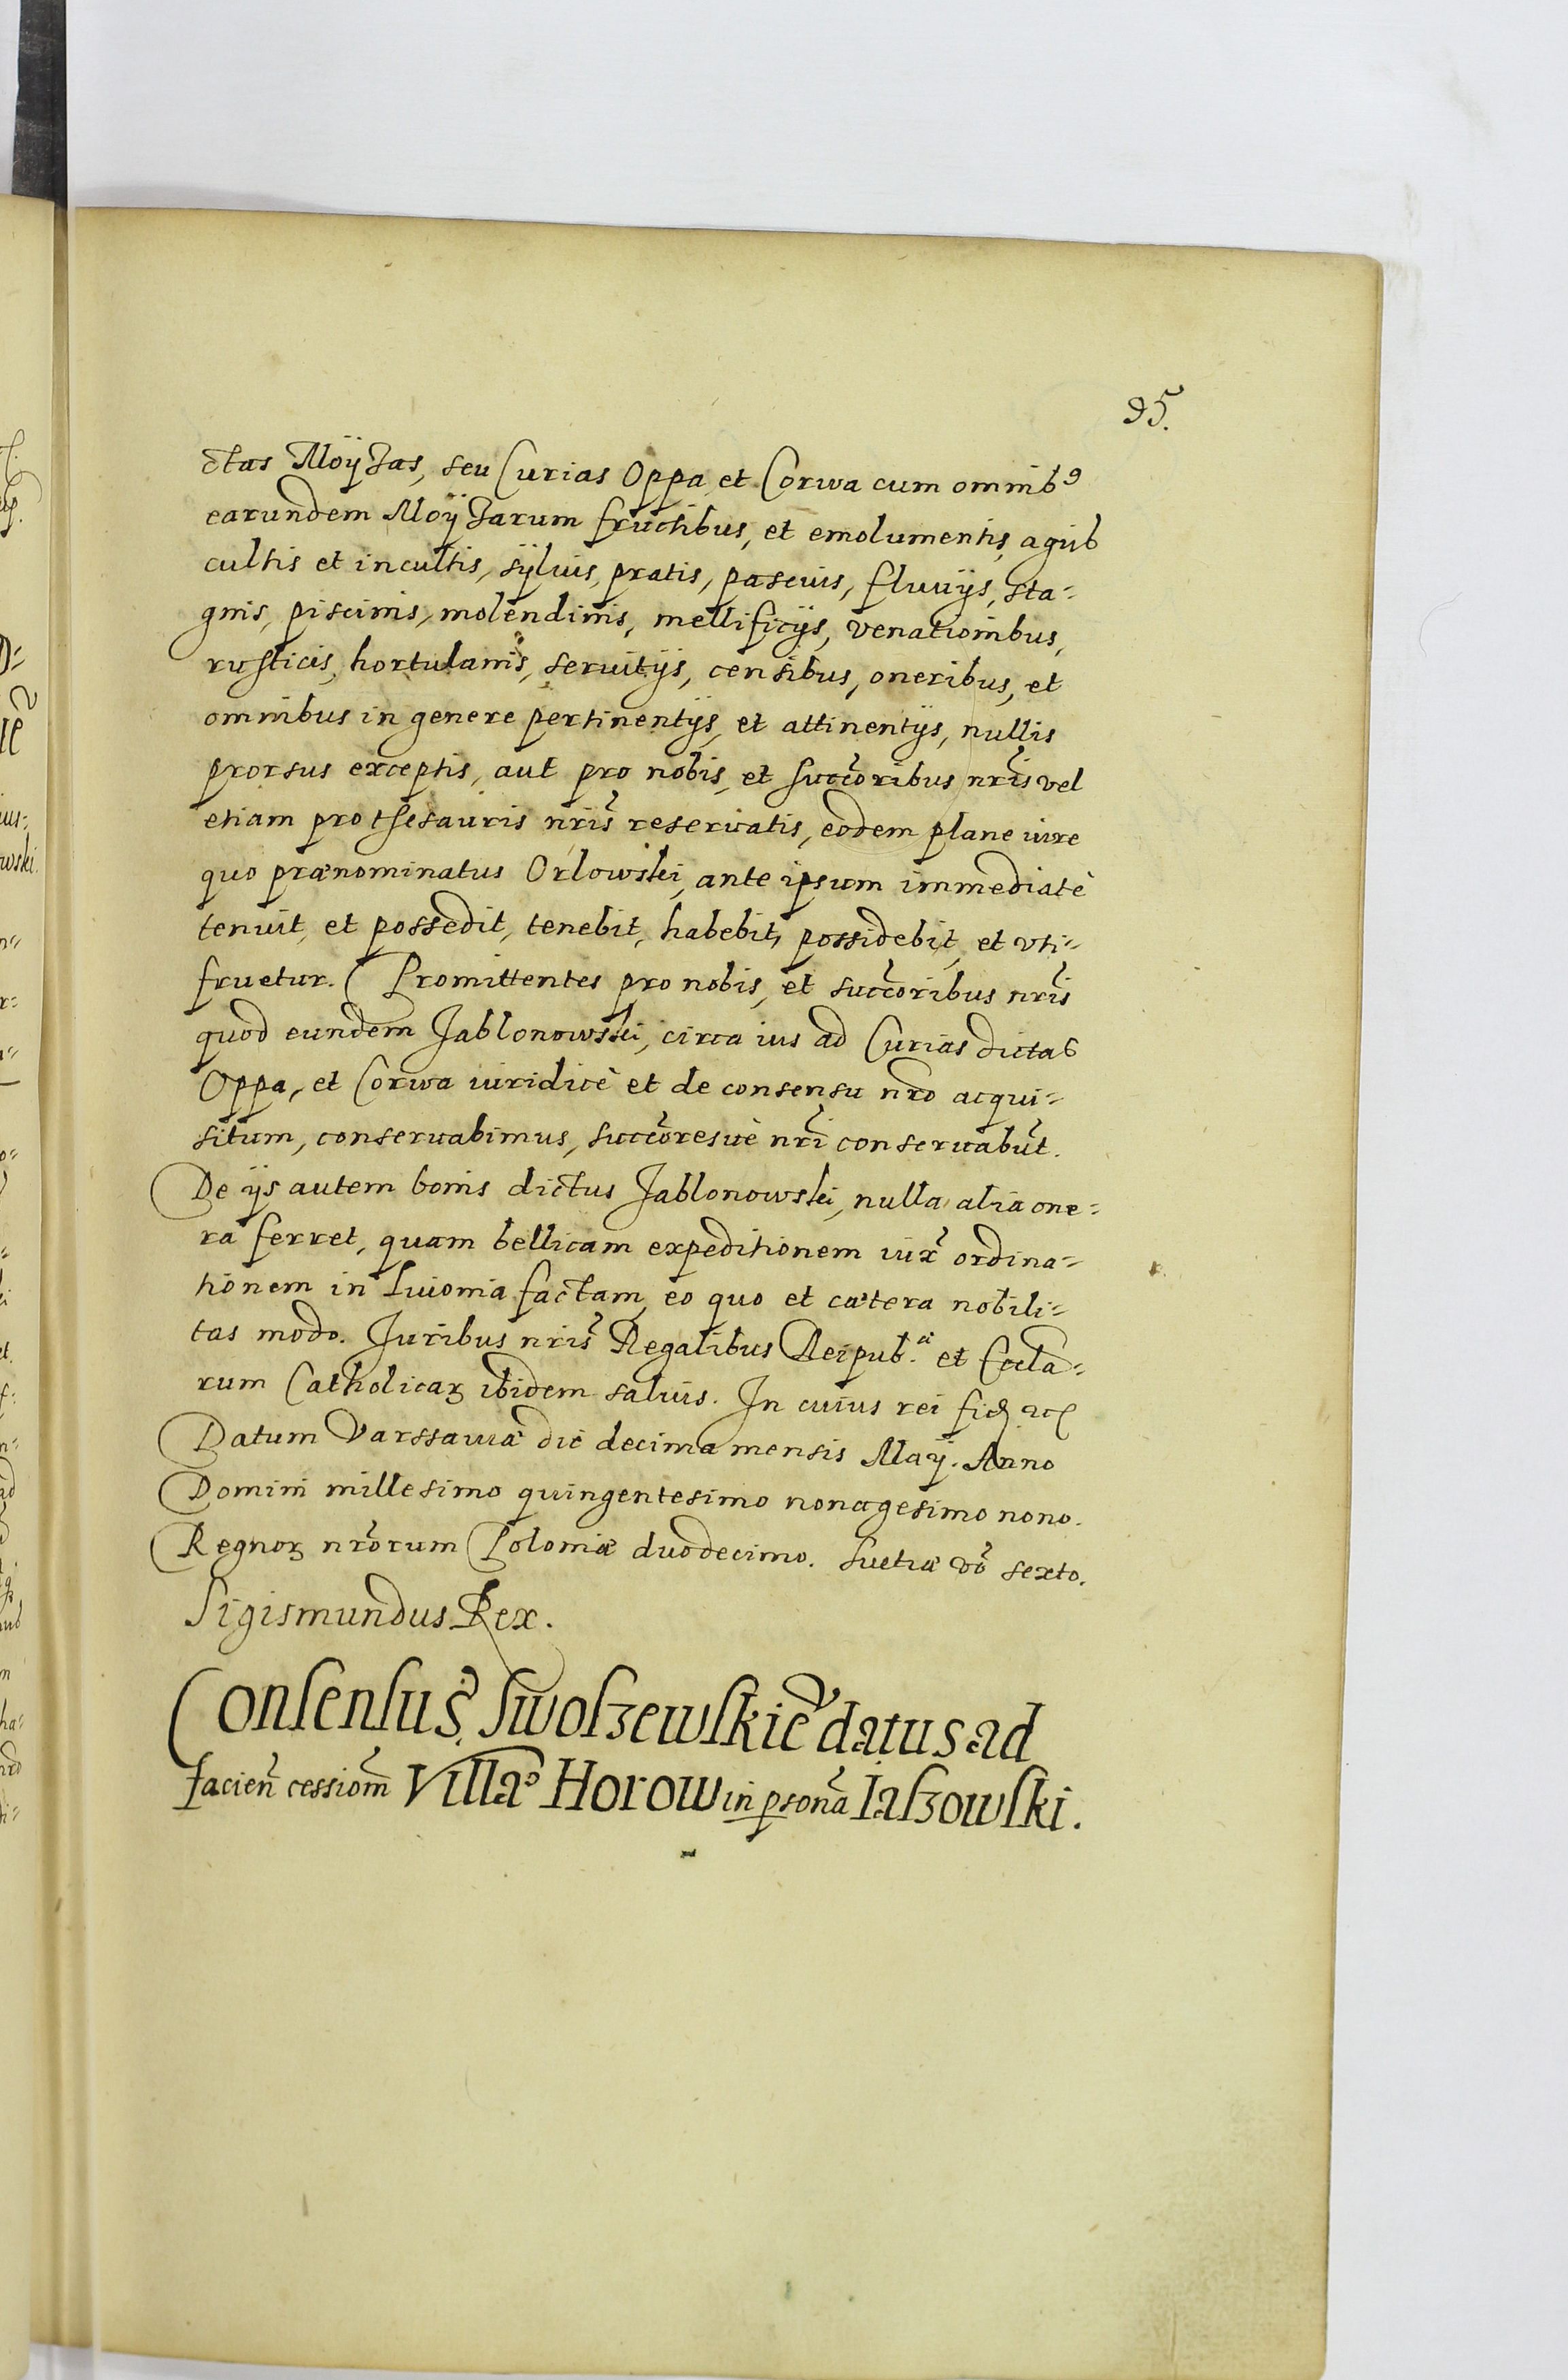 95.
ctas Moÿzas, seu Curias Oppa et Corwa cum omnib9
earundem Moÿzarum fructibus, et emolumentis, agris
cultis et incultis, sÿluis, pratis, pascuis, fluuijs, sta=
gnis, piscinis, molendinis, mellificijs, venationibus,
rusticis, hortulanis, seruitijs, censibus, oneribus, et
omnibus in genere pertinentijs, et attinentijs, nullis
prorsus exceptis, aut pro nobis, et succoribus nris vel
etiam pro thesauris nris reseruatis, eodem plane iure
quo prænominatus Orlowski, ante ipsum immediatè
tenuit, et possedit, tenebit, habebit, possidebit, et vti=
fruetur. Promittentes pro nobis, et succoribus nris
quod eundem Jablonowski, circa ius ad Curias dictas
Oppa, et Corwa iuridicè et de consensu nro acqui=
situm, conseruabimus, succoresuè nri conseruabut.
De ijs autem bonis dictus Jablonowski, nulla alia one=
ra ferret, quam bellicam expeditionem iux ordina=
tionem in Liuonia factam, eo quo et cætera nobili=
tas modo. Juribus nris Regalibus Reipub. et Eccla=
rum Catholicaꝝ ibidem saluis. In cuius rei fid
Datum Varssauiæ die decima mensis Maij. Anno
Domini millesimo quingentesimo nonagesimo nono.
Regnoꝝ nrorum Poloniæ duodecimo. Suetiæ vo sexto.
Sigismundus Rex.
Consensus Swoszewskie datus ad
facien cessiom Villæ Horow in psona Iaszowski.